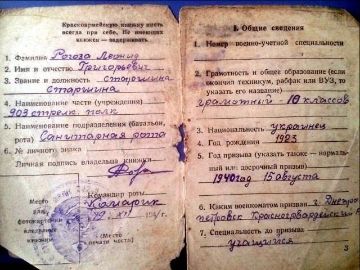 Красноармейскую книжку иметь
всегда при себе. Не имеющих
книжек — задерживать.
1. Фамилия Рогоза Леонид
2. Имя и отчество Григорьевич
3. Звание и должность старшина
старшина
4. Наименование части (учреждения)
903 стрелк. полк
5. Наименование подразделения (батальон,
рота) Санитарная рота
6. № личного знака
Личная подпись владельца книжки
Место
для
фотокарточки
Командир роты
Место
печати части)
I. Общие сведения
1. Номер военно-учетной специальности
2. Грамотность и общее образование (если
окончил техникум, рабфак или ВУЗ, то
указать его название)
грамотный 10 классов
3. Национальность украинец
4. Год рождения 1923
5. Год призыва (указать также — нормаль-
ный или досрочный призыв)
1940 год 15 августа
6. Каким военкоматом призван г. Днепро
петровск Красногвардейский
7. Специальность до призыва
учащийся
3